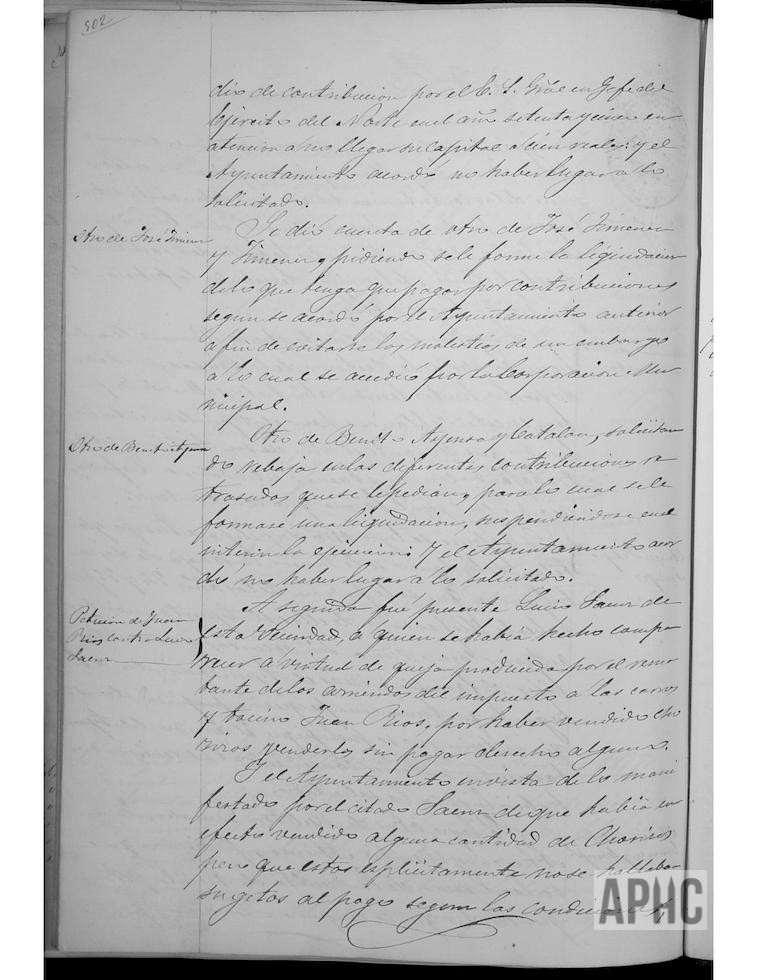 302
dio de contribucion por el E. S. Gral en Gefe del
Ejército del Norte en el año setenta y cinco en
atencion a no llegar su capital a cien reales: y el
Ayuntamiento acordó no haber lugar a lo
solicitado.
Otro de José Jimenez
Se dió cuenta de otro de José Jimenez
y Jimenez, pidiendo se le forme la liquidacion
de lo que tenga que pagar por contribuciones
segun se acordó por el Ayuntamiento anterior
a fin de evitarse las molestias de un embargo
a lo cual se accedió por la Corporacion Mu
nicipal.
Otro de Benito Ayensa
Otro de Benito Ayensa y Catalan, solicitan
do rebaja en las diferentes contribuciones a
trasadas que se le pedian, para lo cual se le
formase una liquidacion, suspendiendose en el
interin la ejecucion: Y el Ayuntamiento acor
dó no haber lugar a lo solicitado.
Peticion de Juan
Rios contra Lucio
Saenz
A seguida fué presente Lucio Saenz de
esta vecindad, a quien se habia hecho compa
recer a virtud de queja producida por el rema
tante de los arriendos del impuesto a las carnes
y tocino Juan Rios, por haber vendido cho
rizos y venderlos sin pagar derecho alguno.
Y el Ayuntamiento en vista de lo mani
festado por el citado Saenz de que habia en
efecto vendido alguna cantidad de Chorizos
pero que estos esplicitamente no se hallaban
sugetos al pago segun las condiciones,
APHC